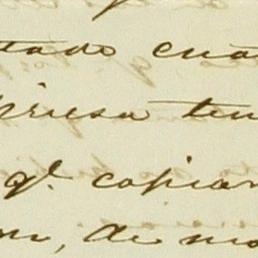 tado cua
priesa ten
q.e copiar
, de mo